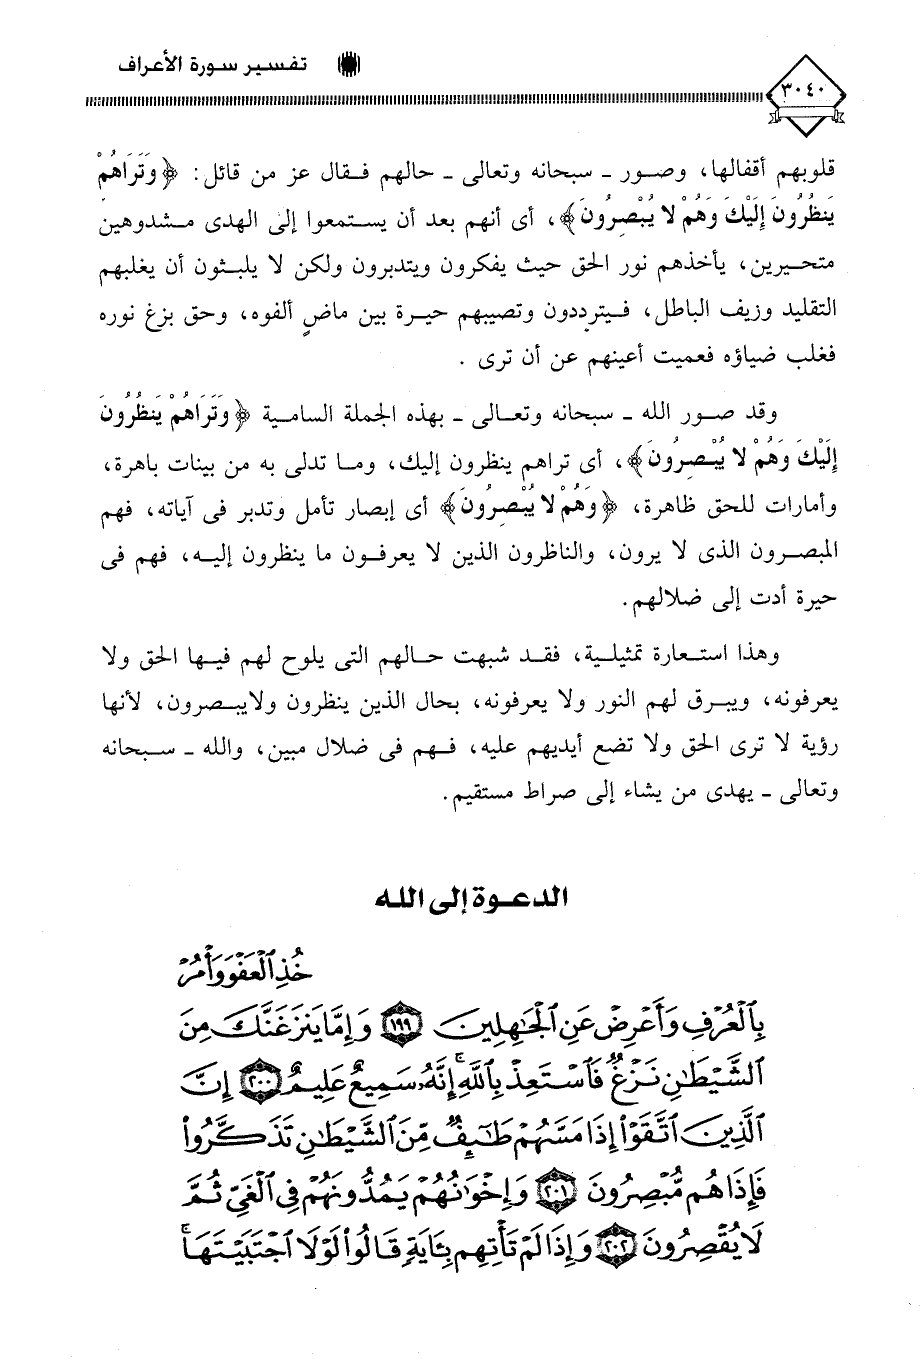 ٣٠٤٠
تفسير سورة الأعراف
قلوبهم أقفالها، وصور ـ سبحانه وتعالى ـ حالهم فقال عز من قائل: ﴿ وَتَرَاهُمْ
يَنظُرُونَ إِلَيْكَ وَهُمْ لا يُبْصِرُونَ ﴾، أى أنهم بعد أن يستمعوا إلى الهدى مشدوهين
متحيرين، يأخذهم نور الحق حيث يفكرون ويتدبرون ولكن لا يلبثون أن يغلبهم
التقليد وزيف الباطل، فيترددون وتصيبهم حيرة بين ماضٍ ألفوه، وحق بزغ نوره
فغلب ضياؤه فعميت أعينهم عن أن ترى .
وقد صور الله ـ سبحانه وتعالى ـ بهذه الجملة السامية ﴿ وَتَرَاهُمْ يَنظُرُونَ
إِلَيْكَ وَهُمْ لا يُبْصِرُونَ ﴾، أى تراهم ينظرون إليك، وما تدلى به من بينات باهرة،
وأمارات للحق ظاهرة، ﴿ وَهُمْ لا يُبْصِرُونَ ﴾ أى إبصار تأمل وتدبر فى آياته، فهم
المبصرون الذى لا يرون، والناظرون الذين لا يعرفون ما ينظرون إليه، فهم فى
حيرة أدت إلى ضلالهم.
وهذا استعارة تمثيلية، فقد شبهت حالهم التى يلوح لهم فيها الحق ولا
يعرفونه، ويبرق لهم النور ولا يعرفونه، بحال الذين ينظرون ولايبصرون، لأنها
رؤية لا ترى الحق ولا تضع أيديهم عليه، فهم فى ضلال مبين، والله ـ سبحانه
وتعالى ـ يهدى من يشاء إلى صراط مستقيم.
الدعوة إلى الله
خُذِ ٱلْعَفْوَ وَأْمُرْ
بِٱلْعُرْفِ وَأَعْرِضْ عَنِ ٱلْجَٰهِلِينَ ١٩٩ وَإِمَّا يَنزَغَنَّكَ مِنَ
ٱلشَّيْطَٰنِ نَزْغٌ فَٱسْتَعِذْ بِٱللَّهِ إِنَّهُۥ سَمِيعٌ عَلِيمٌ ٢٠٠ إِنَّ
ٱلَّذِينَ ٱتَّقَوْا۟ إِذَا مَسَّهُمْ طَٰٓئِفٌ مِّنَ ٱلشَّيْطَٰنِ تَذَكَّرُوا۟
فَإِذَا هُم مُّبْصِرُونَ ٢٠١ وَإِخْوَٰنُهُمْ يَمُدُّونَهُمْ فِى ٱلْغَىِّ ثُمَّ
لَا يُقْصِرُونَ ٢٠٢ وَإِذَا لَمْ تَأْتِهِم بِـَٔايَةٍ قَالُوا۟ لَوْلَا ٱجْتَبَيْتَهَا ۚ